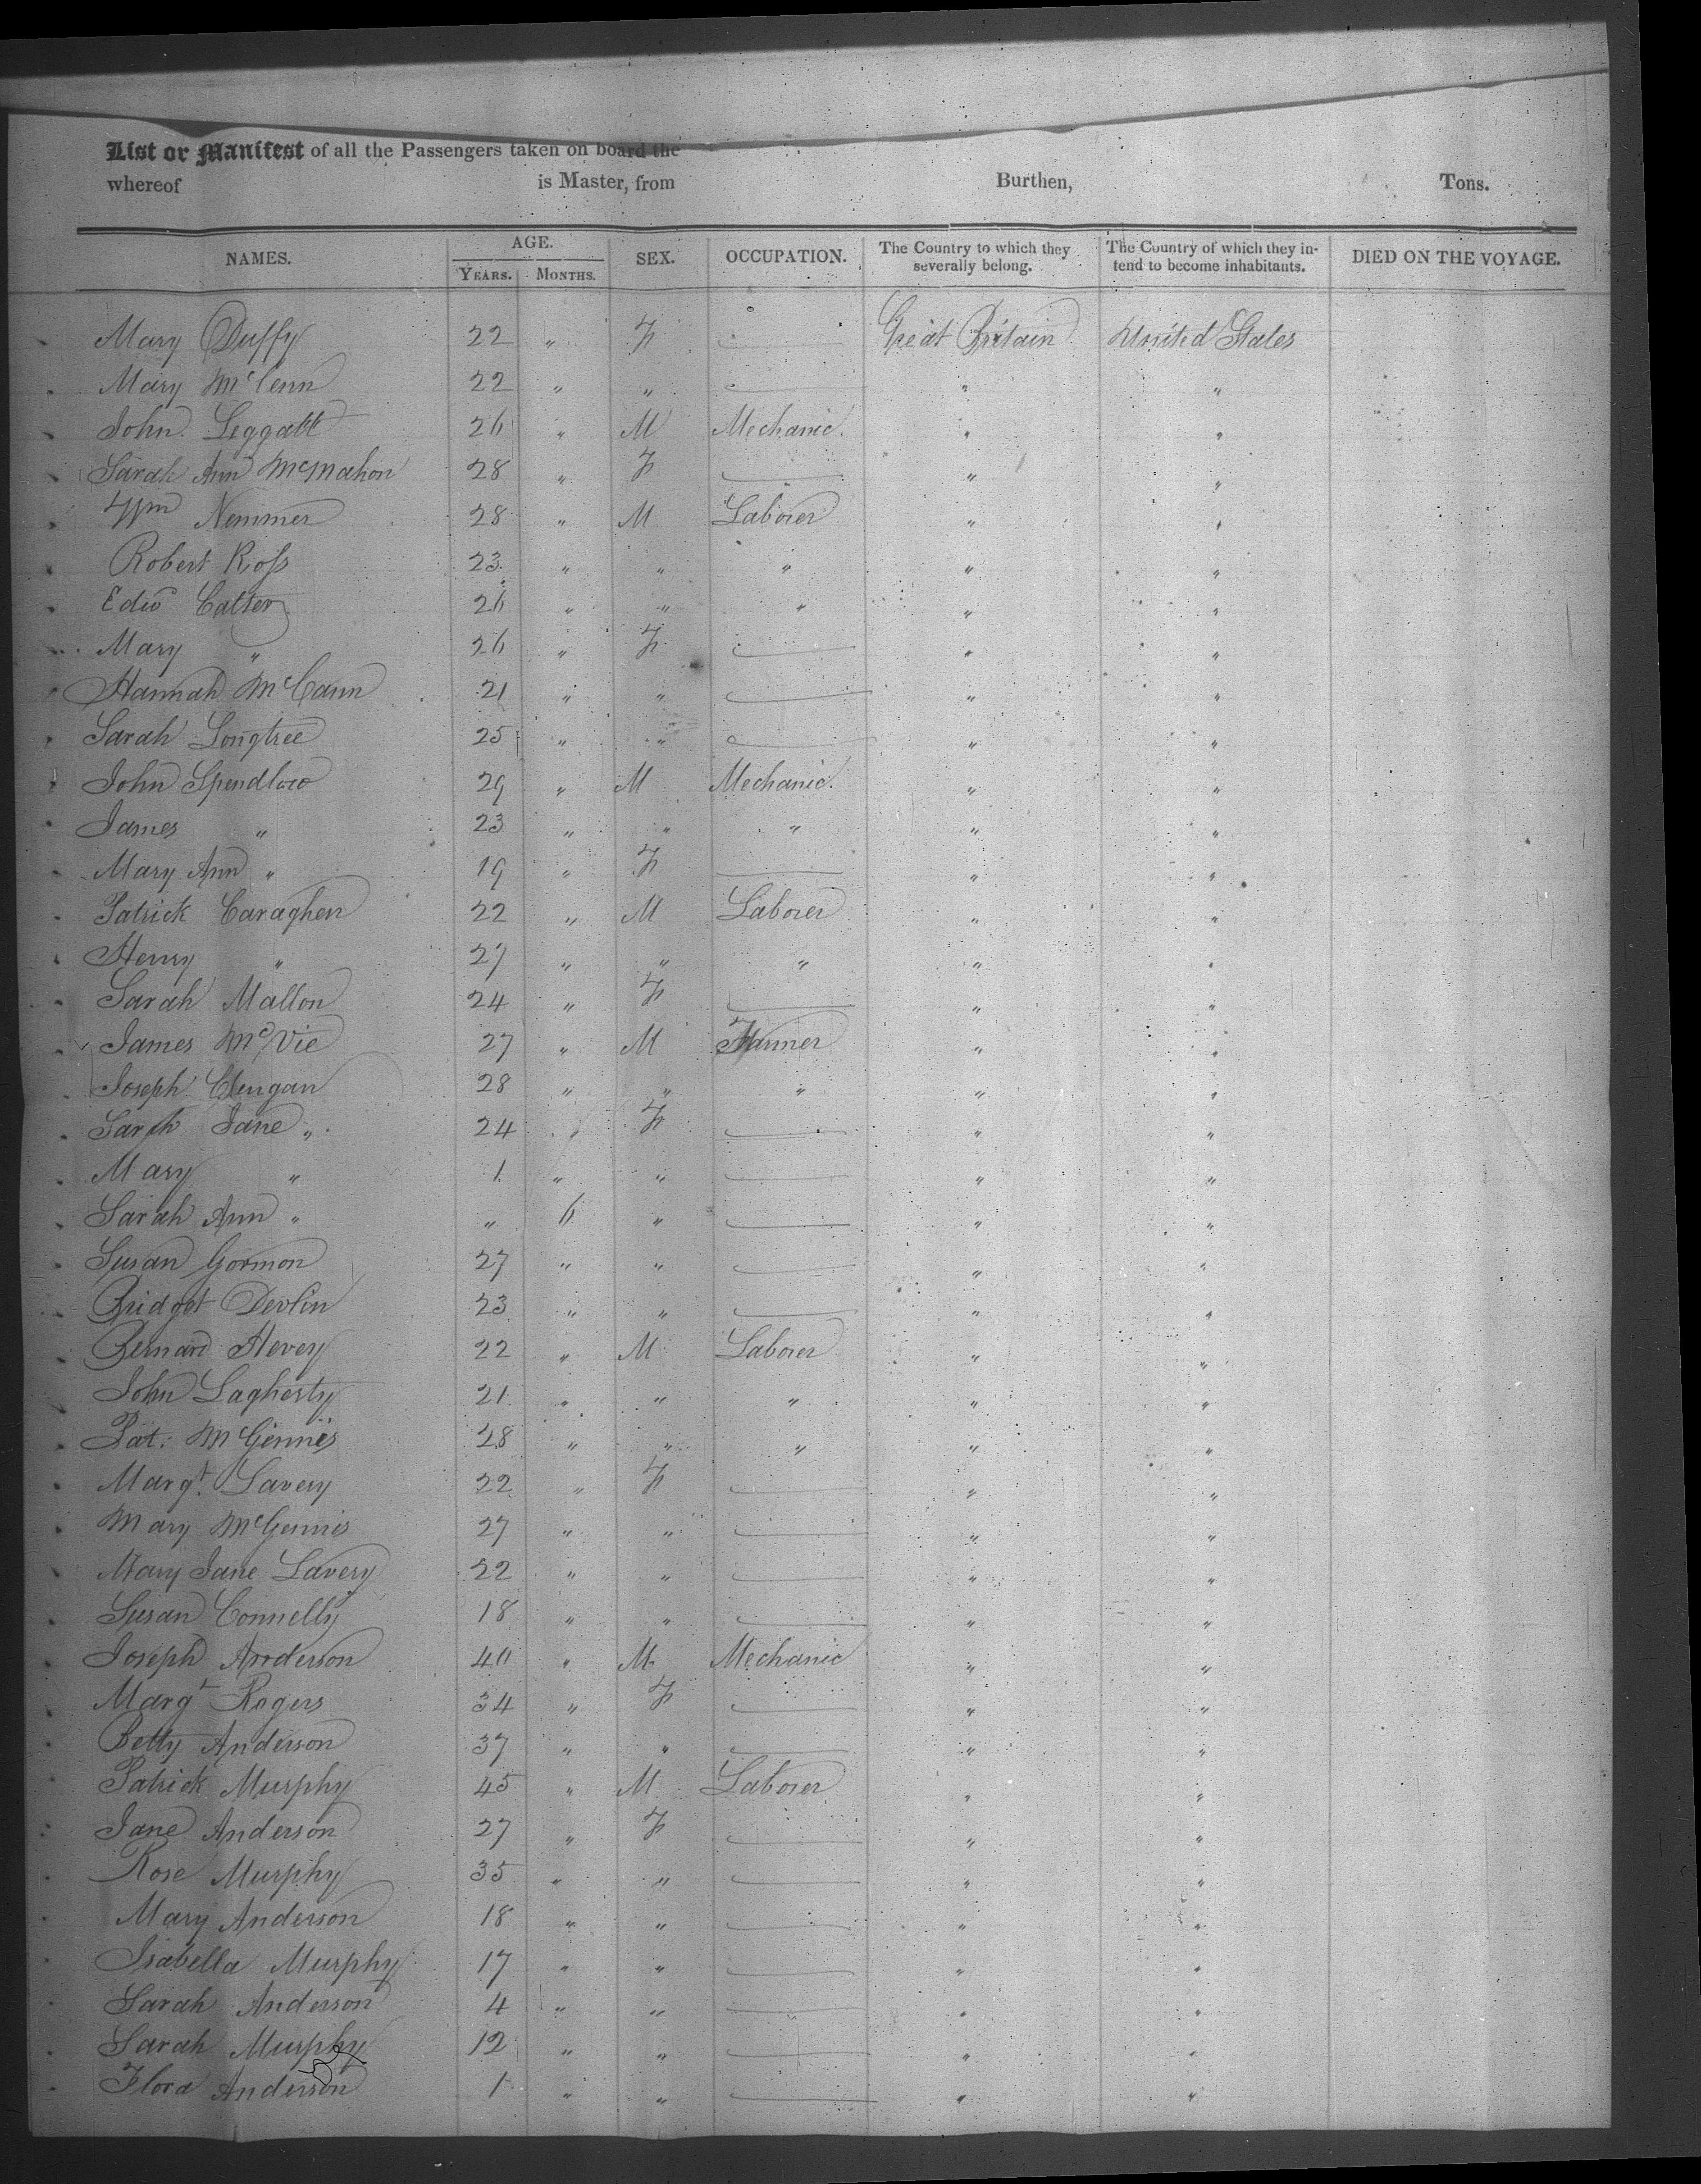 List or Manifest of all the Passengers taken on board the
whereof is Master, from Burthen, Tons.
NAMES. AGE. SEX. OCCUPATION. The Country to which they severally belong. The Country of which they intend to become inhabitants. DIED ON THE VOYAGE.
YEARS. MONTHS.
Mary Duffy 22 " F Great Britain United States
Mary 22 " " " "
John Leggatt 26 " M Mechanic " "
Sarah Ann McMahon 28 " F " "
Wm Nemmer 28 " M Laborer " "
Robert Ross 23 " " " " "
Edwd 26 " " " " "
Mary " 26 " F " "
Hannah McCann 21 " " " "
Sarah Longtree 25 " " " "
John Spendlow 29 " M Mechanic " "
James " 23 " " " " "
Mary Ann " 19 " F " "
Patrick Caraghen 22 " M Laborer " "
Henry " 27 " " " " "
Sarah Mallon 24 " F " "
James McVie 27 " M Farmer " "
Joseph Clengan 28 " " " " "
Sarah Jane " 24 " F " "
Mary " 1 " " " "
Sarah Ann " " 6 " " "
Susan Gormon 27 " " " "
Bridget Devlin 23 " " " "
Bernard Hevey 22 " M Laborer " "
John Lagherty 21 " " " " "
Pat: McGennis 28 " " " " "
Margt. Lavery 22 " F " "
Mary McGennis 27 " " " "
Mary Jane Lavery 22 " " " "
Susan Connelly 18 " " " "
Joseph Anderson 40 " M Mechanic " "
Margt Rogers 34 " F " "
Betty Anderson 37 " " " "
Patrick Murphy 45 " M Laborer " "
Jane Anderson 27 " F " "
Rose Murphy 35 " " " "
Mary Anderson 18 " " " "
Isabella Murphy 17 " " " "
Sarah Anderson 4 " " " "
Sarah Murphy 12 " " " "
Flora Anderson 1 " " " "